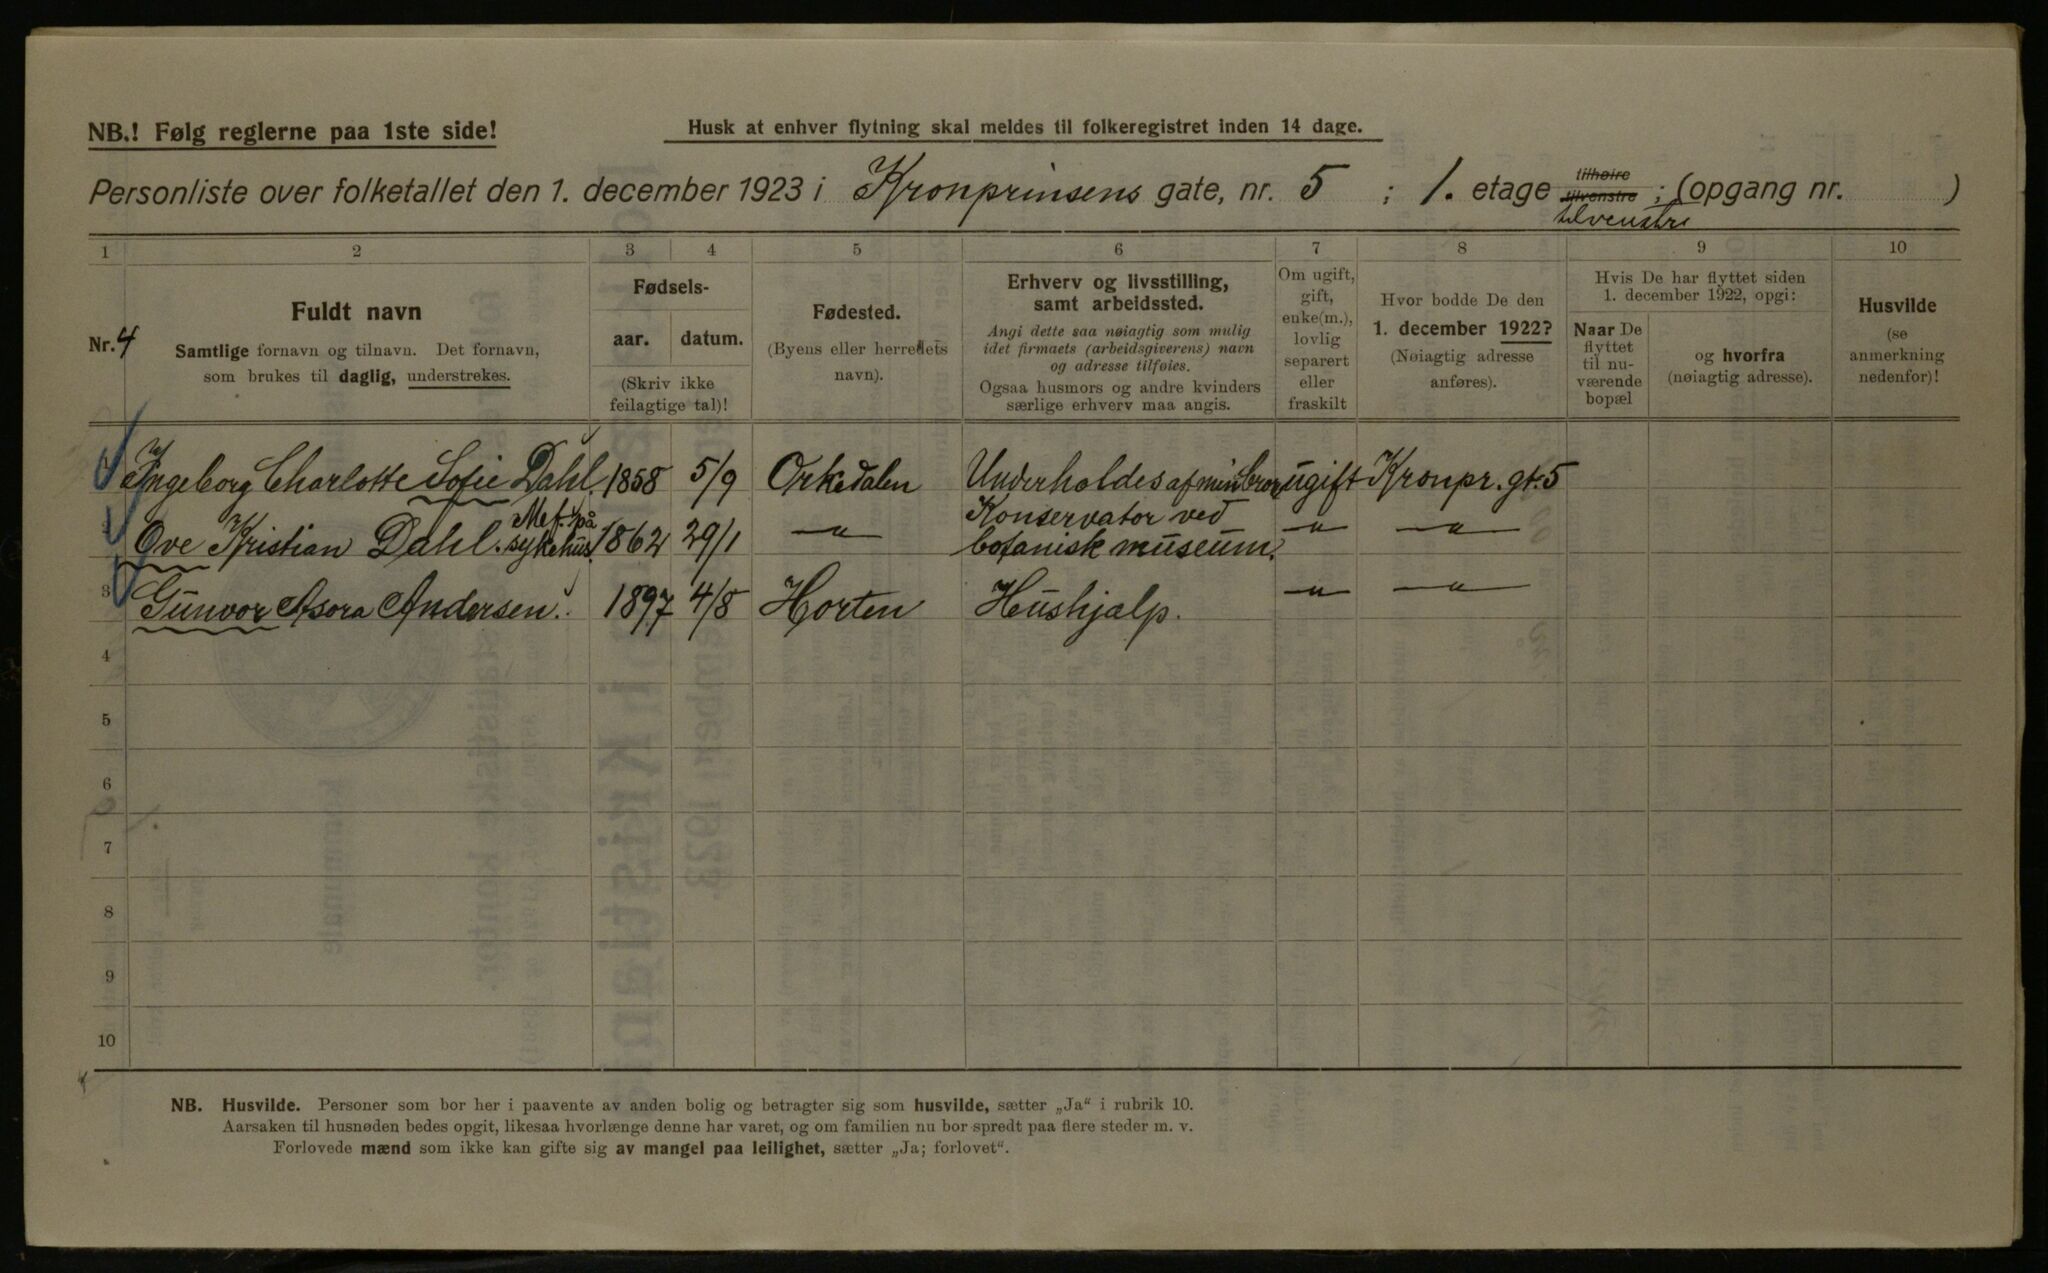 NB.! Følg reglerne paa 1ste side!
Husk at enhver flytning skal meldes til folkeregistret inden 14 dage.
Personliste over folketallet den 1. december 1923 i Kronprinsens gate, nr. 5 ; 1. etage tilhøire tilvenstre ; (opgang nr. )
tilvenstre
1 2 3 4 5 6 7 8 9 10
Nr. 4
Fuldt navn
Samtlige fornavn og tilnavn. Det fornavn,
som brukes til daglig, understrekes.
Fødsels-
aar. datum.
(Skriv ikke
feilagtige tal)!
Fødested.
(Byens eller herredets
navn).
Erhverv og livsstilling,
samt arbeidssted.
Angi dette saa nøiagtig som mulig
idet firmaets (arbeidsgiverens) navn
og adresse tilføies.
Ogsaa husmors og andre kvinders
særlige erhverv maa angis.
Om ugift,
gift,
enke(m.),
lovlig
separert
eller
fraskilt
Hvor bodde De den
1. december 1922?
(Nøiagtig adresse
anføres).
Hvis De har flyttet siden
1. december 1922, opgi:
Naar De
flyttet
til nu-
værende
bopæl
og hvorfra
(nøiagtig adresse).
Husvilde
(se
anmerkning
nedenfor)!
Ingeborg Charlotte Sofie Dahl. 1858 5/9 Orkedalen Underholdes af min bror ugift Kronpr. gt. 5
Ove Kristian Dahl. Mef. på sykehus. 1862 29/1 -"- Konservator ved botanisk museum. -"- -"-
3 Gunvor Asora Andersen. 1897 4/8 Horten Hushjælp. -"- -"-
4
5
6
7
8
9
10
NB. Husvilde. Personer som bor her i paavente av anden bolig og betragter sig som husvilde, sætter „Ja“ i rubrik 10.
Aarsaken til husnøden bedes opgit, likesaa hvorlænge denne har varet, og om familien nu bor spredt paa flere steder m. v.
Forlovede mænd som ikke kan gifte sig av mangel paa leilighet, sætter „Ja; forlovet“.